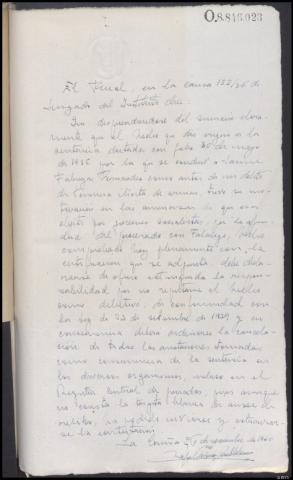 O.8.846.023
El Fiscal, en la causa 152/36 de
Juzgado del Instituto dice:
Que desprendiendose del sumario clara-
mente que el hecho que dio origen a la
sentencia dictada con fecha 30 de mayo
de 1936 por la que se condenó a
Fernandez como autor de un delito
de tenencia ilícita de armas, tuvo su mo-
tivación en las amenazas de que era
objeto por jovenes socialistas, por la afini-
dad del procesado con Falange, hecho
comprobado hoy plenamente con la
certificacion que se adjunta, debe decla-
rarse de oficio extinguida la respon-
sabilidad por no reputarse el hecho
como delictivo, de conformidad con
la ley de 23 de setiembre de 1939 y en
consecuencia debera ordenarse la cancela-
ción de todas las anotaciones tomadas
como consecuencia de la sentencia en
los diversos organismos, incluso en el
Registro Central de penados, pues aunque
no consta la tarjeta blanca de antece-
dentes, ha podido
se la
La Coruña 26 de noviembre de 1940